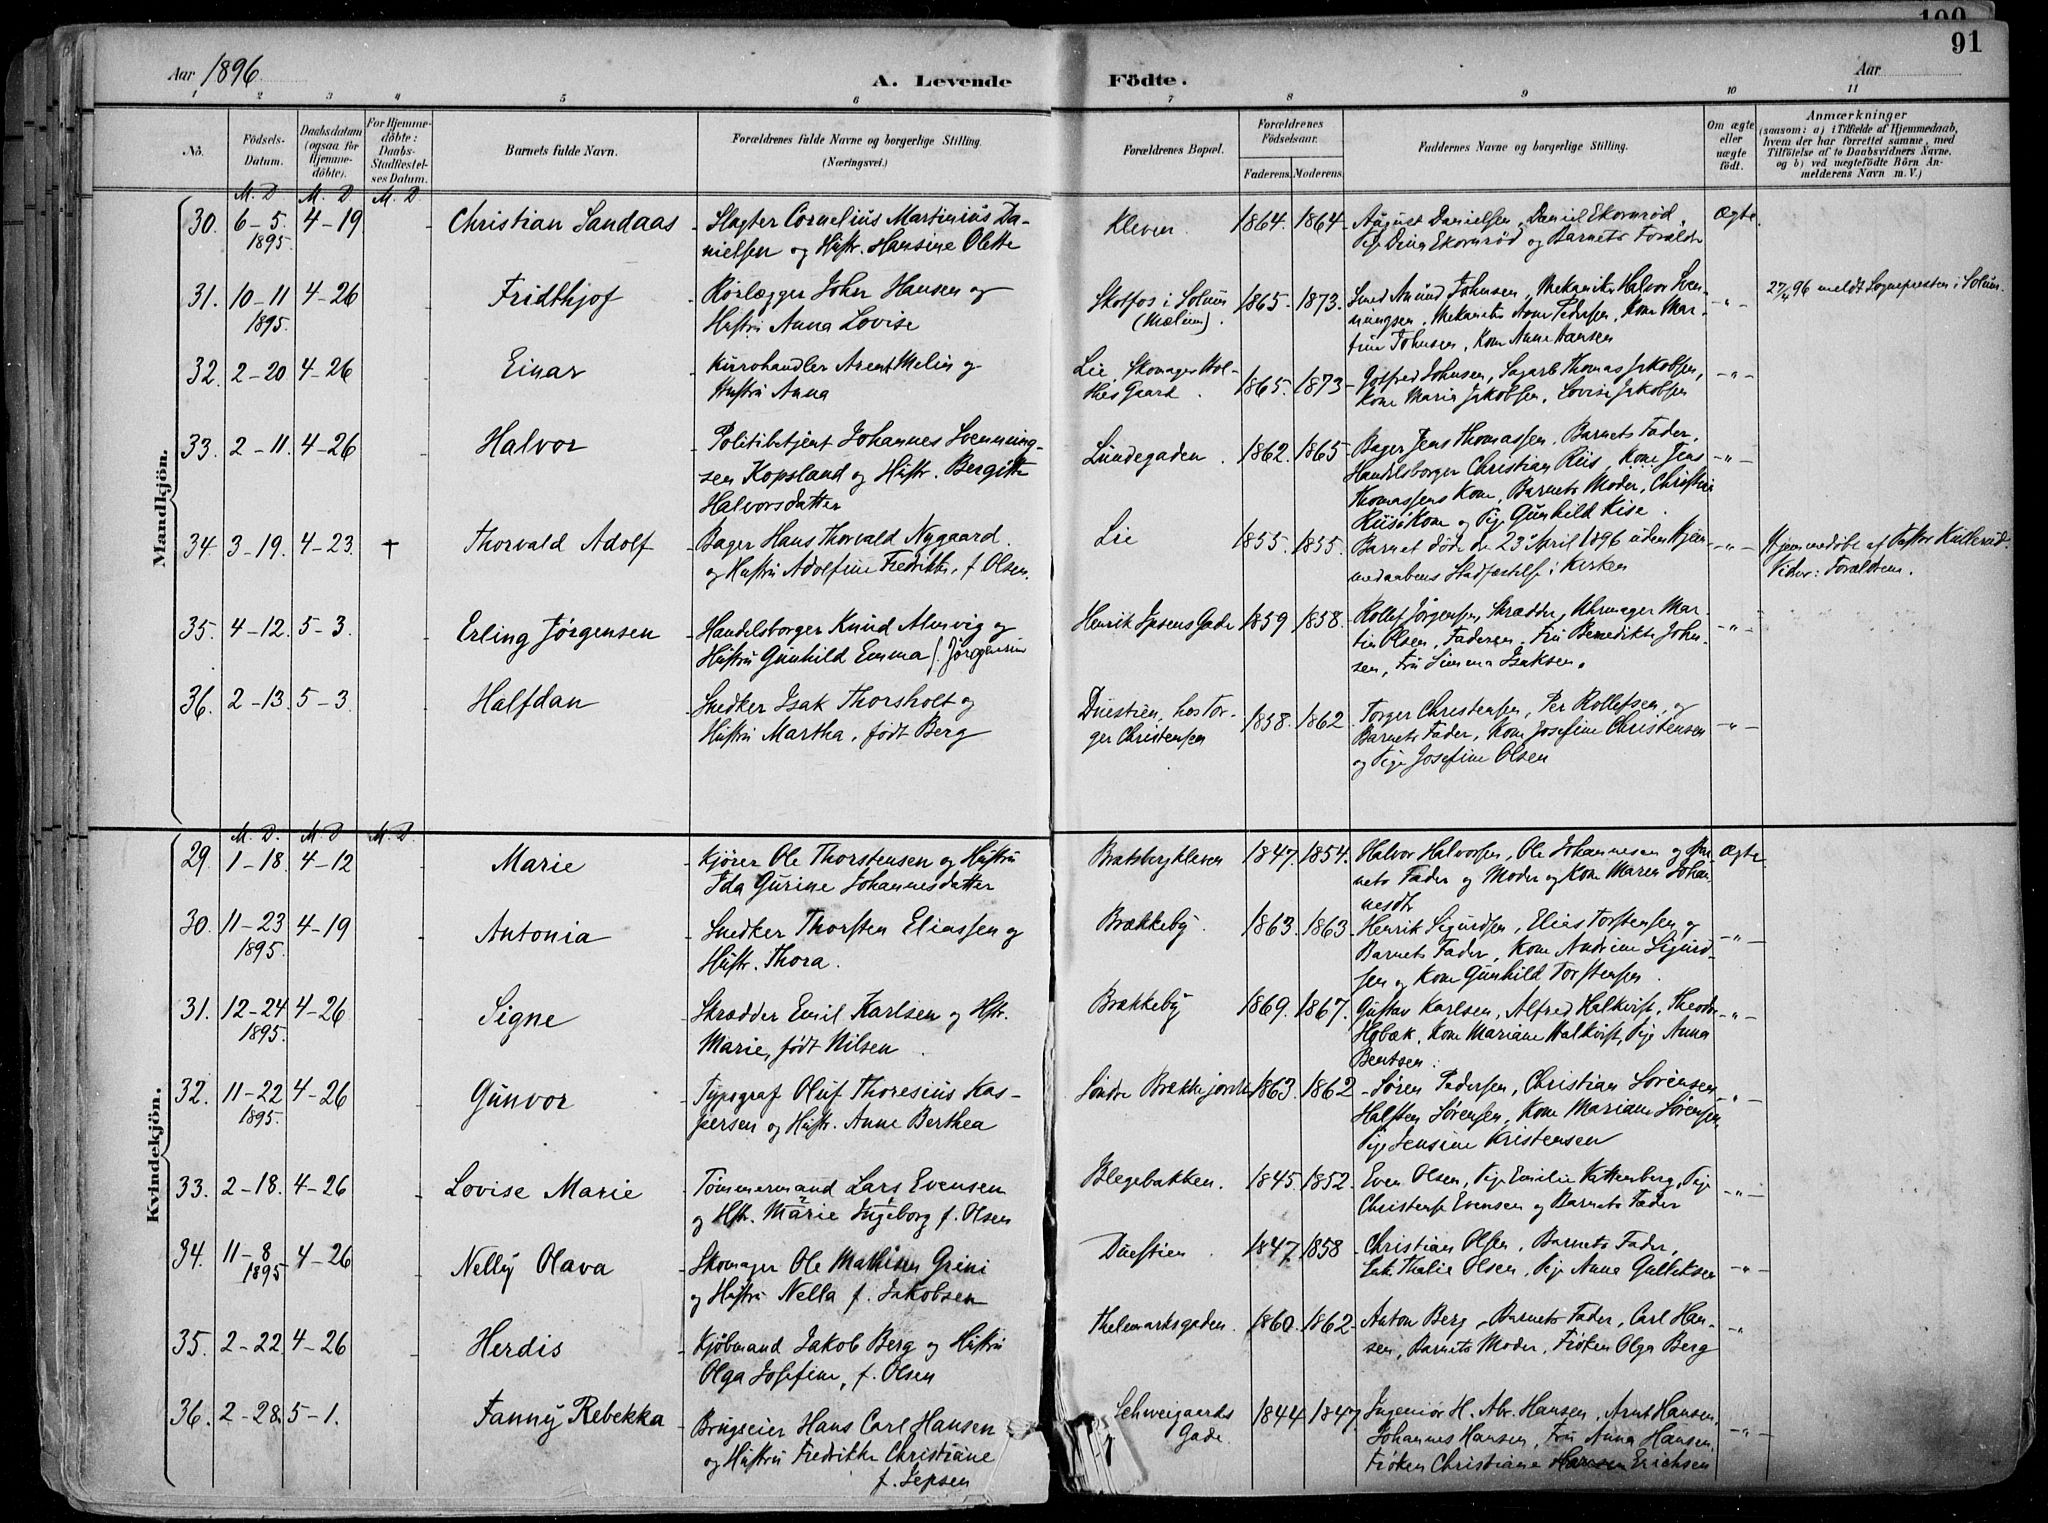 100
91
Aar 1896. A. Levende Födte. Aar
1 2 3 4 5 6 7 8 9 10 11
No. Födsels-Datum. Daabsdatum (ogsaa for Hjemmedöbte). For Hjemmedöbte: Daabs-Stadfæstelses Datum. Barnets fulde Navn. Forældrenes fulde Navne og borgerlige Stilling. (Næringsvei.) Forældrenes Bopæl. Forældrenes Födselsaar. Faderens. Moderens. Faddernes Navne og borgerlige Stilling. Om ægte eller uægte født. Anmærkninger (saasom: a) i Tilfælde af Hjemmedaab, hvem der har forrettet samme, med Tilföielse af to Daabsvidners Navne, og b) ved uægtefödte Börn Anmelderens Navn m. V.)
Mandkjön.
M. D. M. D. M. D
30. 6-5. 4-19 - Christian Sandaas - Slagter Cornelius Martinius Da- Kleven. 1864. 1864 - August Danielsen, Daniel Ekornrød, Ægte.
1895. nielsen og Hustr. Hansine Olette Pige Dina Ekornrød og Barnets Foræld
31. 10-11 4-26 - Fridthjof - Rørlægger John Hansen og Skotfos i Solum 1865- 1873. Smed Amund Johnsen, Mekanik. Halvor Sven- -"- 27/4 96 meldt Sognepresten i Solum.
1895. Hustru Anna Lovise (Mælum). ningsen, Kone Mar-
tine Johnsen, Kone Anne Hansen
32. 2-20 4-26 - Einar - Arent Melin og Lie, Skomager Hol- 1865. 1873 - Gotfred Johnsen, Sagarb. Thomas Jakobsen, -"-
Hustru Anna thes Gaard. Kone Maria Jakobsen, Lovise Jakobsen
33. 2-11. 4-26 - Halvor - Politibetjent Johannes Svenning- Lundegaden. 1862. 1865- Bager Jens Thomassen, Barnets Fader, -"-
sen Kopsland og Hustr. Bergitte Handelsborger Christian Riis, Kone Jens
Halvorsdatter Thomassens Kone, Barnets Moder, Christian
Riis' Kone og Pige Gunhild Kise.
34. 3-19. 4-23. + Thorvald Adolf - Bager Hans Thorvald Nygaard. Lie 1855. 1855. Barnet døde den 23de April 1896 uden Hjem- -"- Hjemmedøbt af Pastor Kullerud.
og Hustru Adolfine Fredrikke, f. Olsen. medaabens Stadfæstelse i Kirken Vidner: Forældrene.
35. 4-12. 5-3. - Erling Jørgensen - Handelsborger Knud Alnvig og Henrik Ipsens Gade 1859 1858. Rollef Jørgensen, Skrædder, Uhrmager Mar- -"-
Hustru Gunhild Emma f. Jørgensen tin Olsen, Faderen, Fru Benedikte John-
sen, Fru Simma Isaksen.
36. 2-13. 5-3. - Halfdan - Snedker Isak Thorsholt og Duestien, hos Tor- 1858. 1862 Torger Christensen, Per Rollefsen, og -"-
Hustru Martha, født Berg ger Christensen Barnets Fader, Kone Josefine Christensen
og Pige Josefine Olsen
Kvindekjön.
M. D. M. D M. D
29. 1-18. 4-12 - Marie - Kjører Ole Thorstensen og Hustru Bratsbergkleven 1847. 1854. Halvor Halvorsen, Ole Johannesen og Bar- Ægte
Ida Gurine Johannesdatter nets Fader og Moder og Kone Maren Johan-
nesdtr
30. 11-23 4-19 - Antonia - Snedker Thorsten Eliassen og Brækkeby. 1863. 1863- Henrik Sigurdsen, Elias Torstensen og -"-
1895. Hustr. Thora. Barnets Fader, Kone Andrine Sigurd-
sen og Kone Gunhild Torstensen.
31. 12-24 4-26 - Signe - Skrædder Emil Karlsen og Hstr. Brækkeby 1869. 1867. Gustav Karlsen, Alfred Halkvist, Theodor -"-
1895. Marie, født Nilsen Høbæk, Kone Mariane Halkvist, Pige Anna
Bentsen.
32. 11-22 4-26 - Gunvor - Typograf Oluf Thoresius Kas- Søndre Brækkejordet 1863. 1862 - Søren Pedersen, Christian Sørensen -"-
1895. persen og Hustr. Anne Berthea Halsten Sørensen, Kone Mariane Sørensen,
Pige Jensine Kristensen
33. 2-18. 4-26 - Lovise Marie - Tømmermand Lars Evensen Blegebakken. 1845. 1852. Even Olsen, Pige Emilie Kattenberg, Pige -"-
og Hstr. Marie Ingeborg f. Olsen Christense Evensen og Barnets Fader
34. 11-8 4-26 - Nelly Olava - Skomager Ole Mathisen Grini Duestien. 1847. 1858 - Christian Olsen, Barnets Fader,
1895 og Hustru Nella f. Jakobsen Enk. Thalie Olsen, Pige Anne Gulliksen -"-
35. 2-22. 4-26 - Herdis - Kjøbmand Jakob Berg og Hustru Thelemarksgaden. 1860. 1862- Anton Berg, Barnets Fader, Carl Han- -"-
Olga Josefine, f. Olsen sen, Barnets Moder, Frøken Olga Berg
36. 2-28. 5-1. Fanny Rebekka - Brugseier Hans Carl Hansen Schweigaards 1844 1847. Ingeniør H. Abr. Hansen, Arnt Hansen,
og Hustru Fredrikke Christiane Gade. Johannes Hansen, Fru Anna Hansen, -"-
f. Jepsen Frøken Christiane Hansen Erichsen